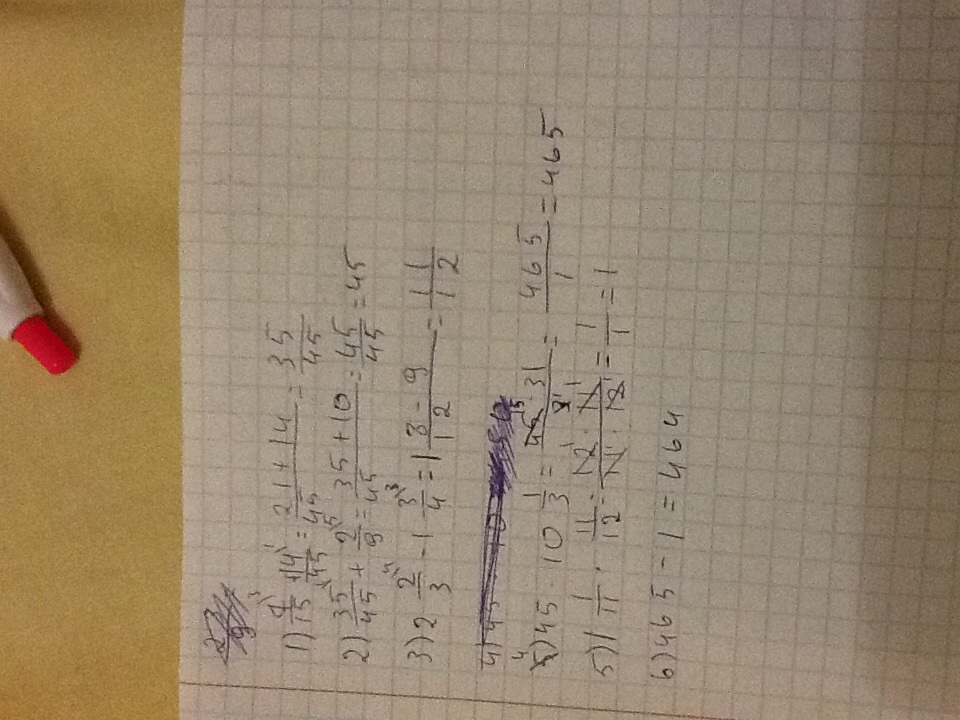 1) 7/15 + 14/45 = 21+14/45 = 35/45
2) 35/45 + 2/9 = 35+10/45 = 45/45 = 45
3) 2 2/3 - 1 3/4 = 1 8-9/12 = 1 1/12
4) 45 · 10 1/3 = 45 · 31/3 = 465/1 = 465
5) 1 1/11 · 11/12 = 12 · 11/11 · 12 = 1/1 = 1
6) 465 - 1 = 464